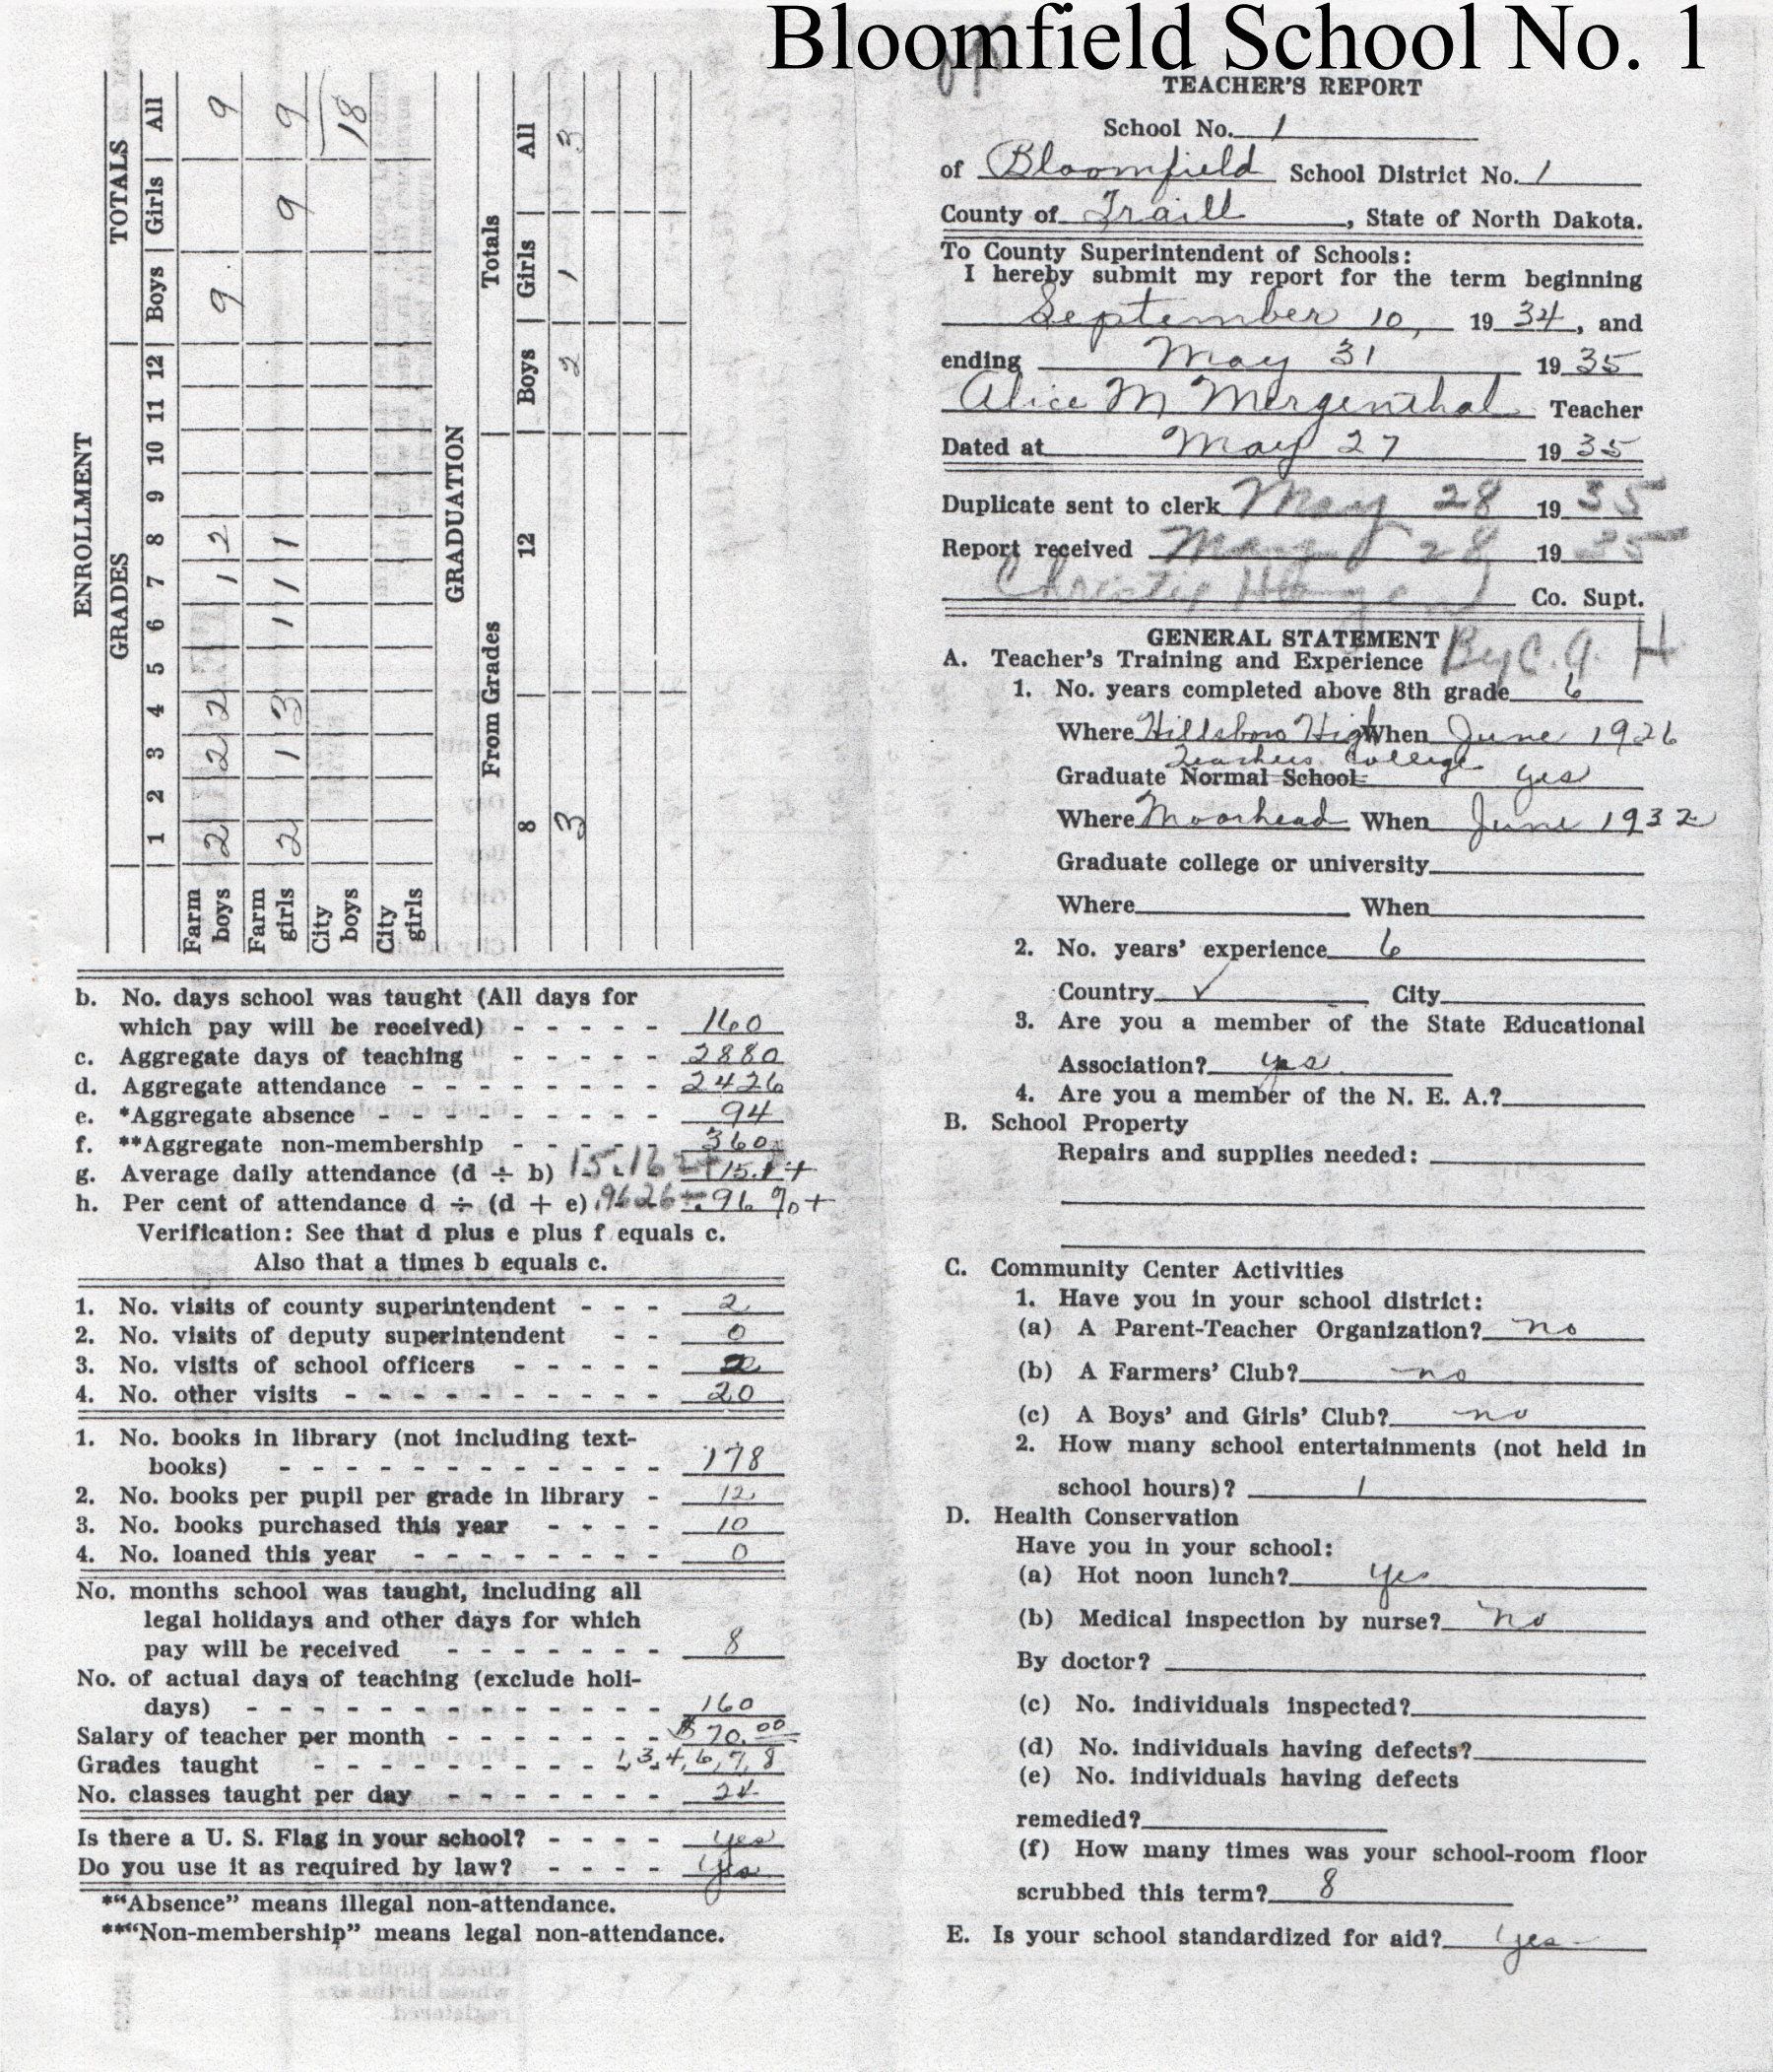 Bloomfield School No. 1
ENROLLMENT
GRADES TOTALS
1 2 3 4 5 6 7 8 9 10 11 12 Boys Girls All
Farm boys 2 2 2 1 2 9 9
Farm girls 2 1 3 1 1 1 9 9
City boys 18
City girls
GRADUATION
From Grades Totals
8 12 Boys Girls All
3 2 1 3
b. No. days school was taught (All days for
which pay will be received) - - - - - 160
c. Aggregate days of teaching - - - - - 2880
d. Aggregate attendance - - - - - - - - 2426
e. *Aggregate absence - - - - - - - - - 94
f. **Aggregate non-membership - - - - 360
g. Average daily attendance (d ÷ b) 15.162+ 15.1+
h. Per cent of attendance d ÷ (d + e) .9626+ .96%+
Verification: See that d plus e plus f equals c.
Also that a times b equals c.
1. No. visits of county superintendent - - - 2
2. No. visits of deputy superintendent - - 0
3. No. visits of school officers - - - - - 2
4. No. other visits - - - - - - - - - - 20
1. No. books in library (not including text-
books) - - - - - - - - - - - - 178
2. No. books per pupil per grade in library - 12
3. No. books purchased this year - - - - 10
4. No. loaned this year - - - - - - - - 0
No. months school was taught, including all
legal holidays and other days for which
pay will be received - - - - - - - 8
No. of actual days of teaching (exclude holi-
days) - - - - - - - - - - - - - 160
Salary of teacher per month - - - - - - - $70.00
Grades taught - - - - - - - - - 1, 3, 4, 6, 7, 8
No. classes taught per day - - - - - - - 24
Is there a U. S. Flag in your school? - - - - yes
Do you use it as required by law? - - - - yes
*"Absence" means illegal non-attendance.
**"Non-membership" means legal non-attendance.
TEACHER'S REPORT
School No. 1
of Bloomfield School District No. 1
County of Traill, State of North Dakota.
To County Superintendent of Schools:
I hereby submit my report for the term beginning
September 10, 1934, and
ending May 31 1935
Alice M Mergenthal Teacher
Dated at May 27 1935
Duplicate sent to clerk May 28 1935
Report received May 28 1935
Christie Co. Supt.
By C. G. H
GENERAL STATEMENT
A. Teacher's Training and Experience
1. No. years completed above 8th grade 6
Where Hillsboro High When June 1926
Teachers College
Graduate Normal School yes
Where Moorhead When June 1932
Graduate college or university
Where When
2. No. years' experience 6
Country ✓ City
3. Are you a member of the State Educational
Association? yes
4. Are you a member of the N. E. A.?
B. School Property
Repairs and supplies needed:
C. Community Center Activities
1. Have you in your school district:
(a) A Parent-Teacher Organization? no
(b) A Farmers' Club? no
(c) A Boys' and Girls' Club? no
2. How many school entertainments (not held in
school hours)? 1
D. Health Conservation
Have you in your school:
(a) Hot noon lunch? yes
(b) Medical inspection by nurse? no
By doctor?
(c) No. individuals inspected?
(d) No. individuals having defects?
(e) No. individuals having defects
remedied?
(f) How many times was your school-room floor
scrubbed this term? 8
E. Is your school standardized for aid? yes